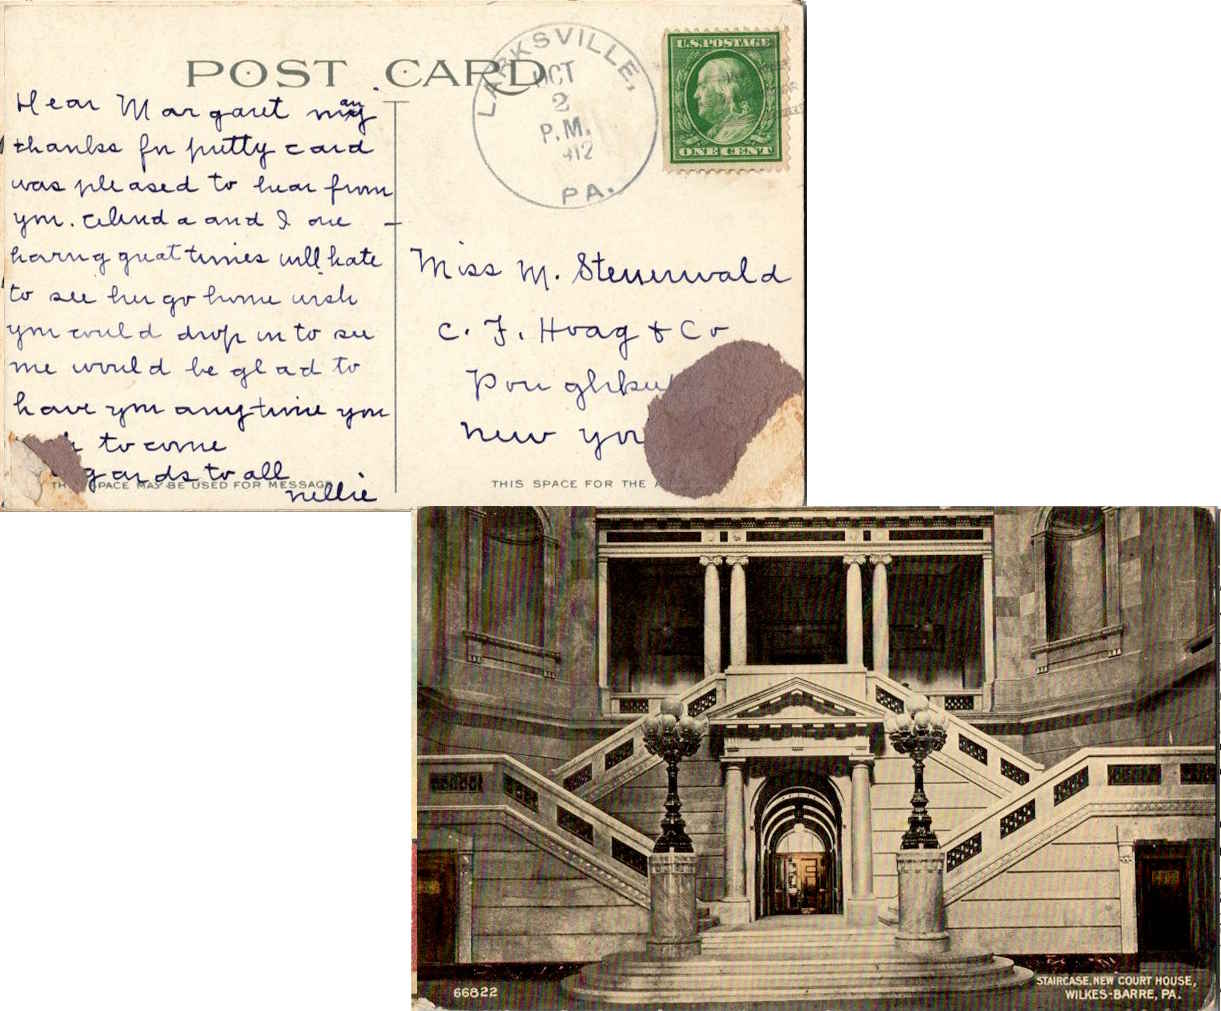 POST CARD
LARKSVILLE,
OCT
2
P.M.
1912
PA.
U.S. POSTAGE
ONE CENT
Dear Margaret many
thanks for pretty card
was pleased to hear from
you. and I are
having great times will hate
to see her go home wish
you could drop in to see
me would be glad to
have you anytime you
to come
gards to all
Nellie
THIS SPACE MAY BE USED FOR MESSAGE
Miss M. Stenenwald
C. F. Hoag & Co
Poughke
New Yo
THIS SPACE FOR THE A
66822
STAIRCASE, NEW COURT HOUSE,
WILKES-BARRE, PA.